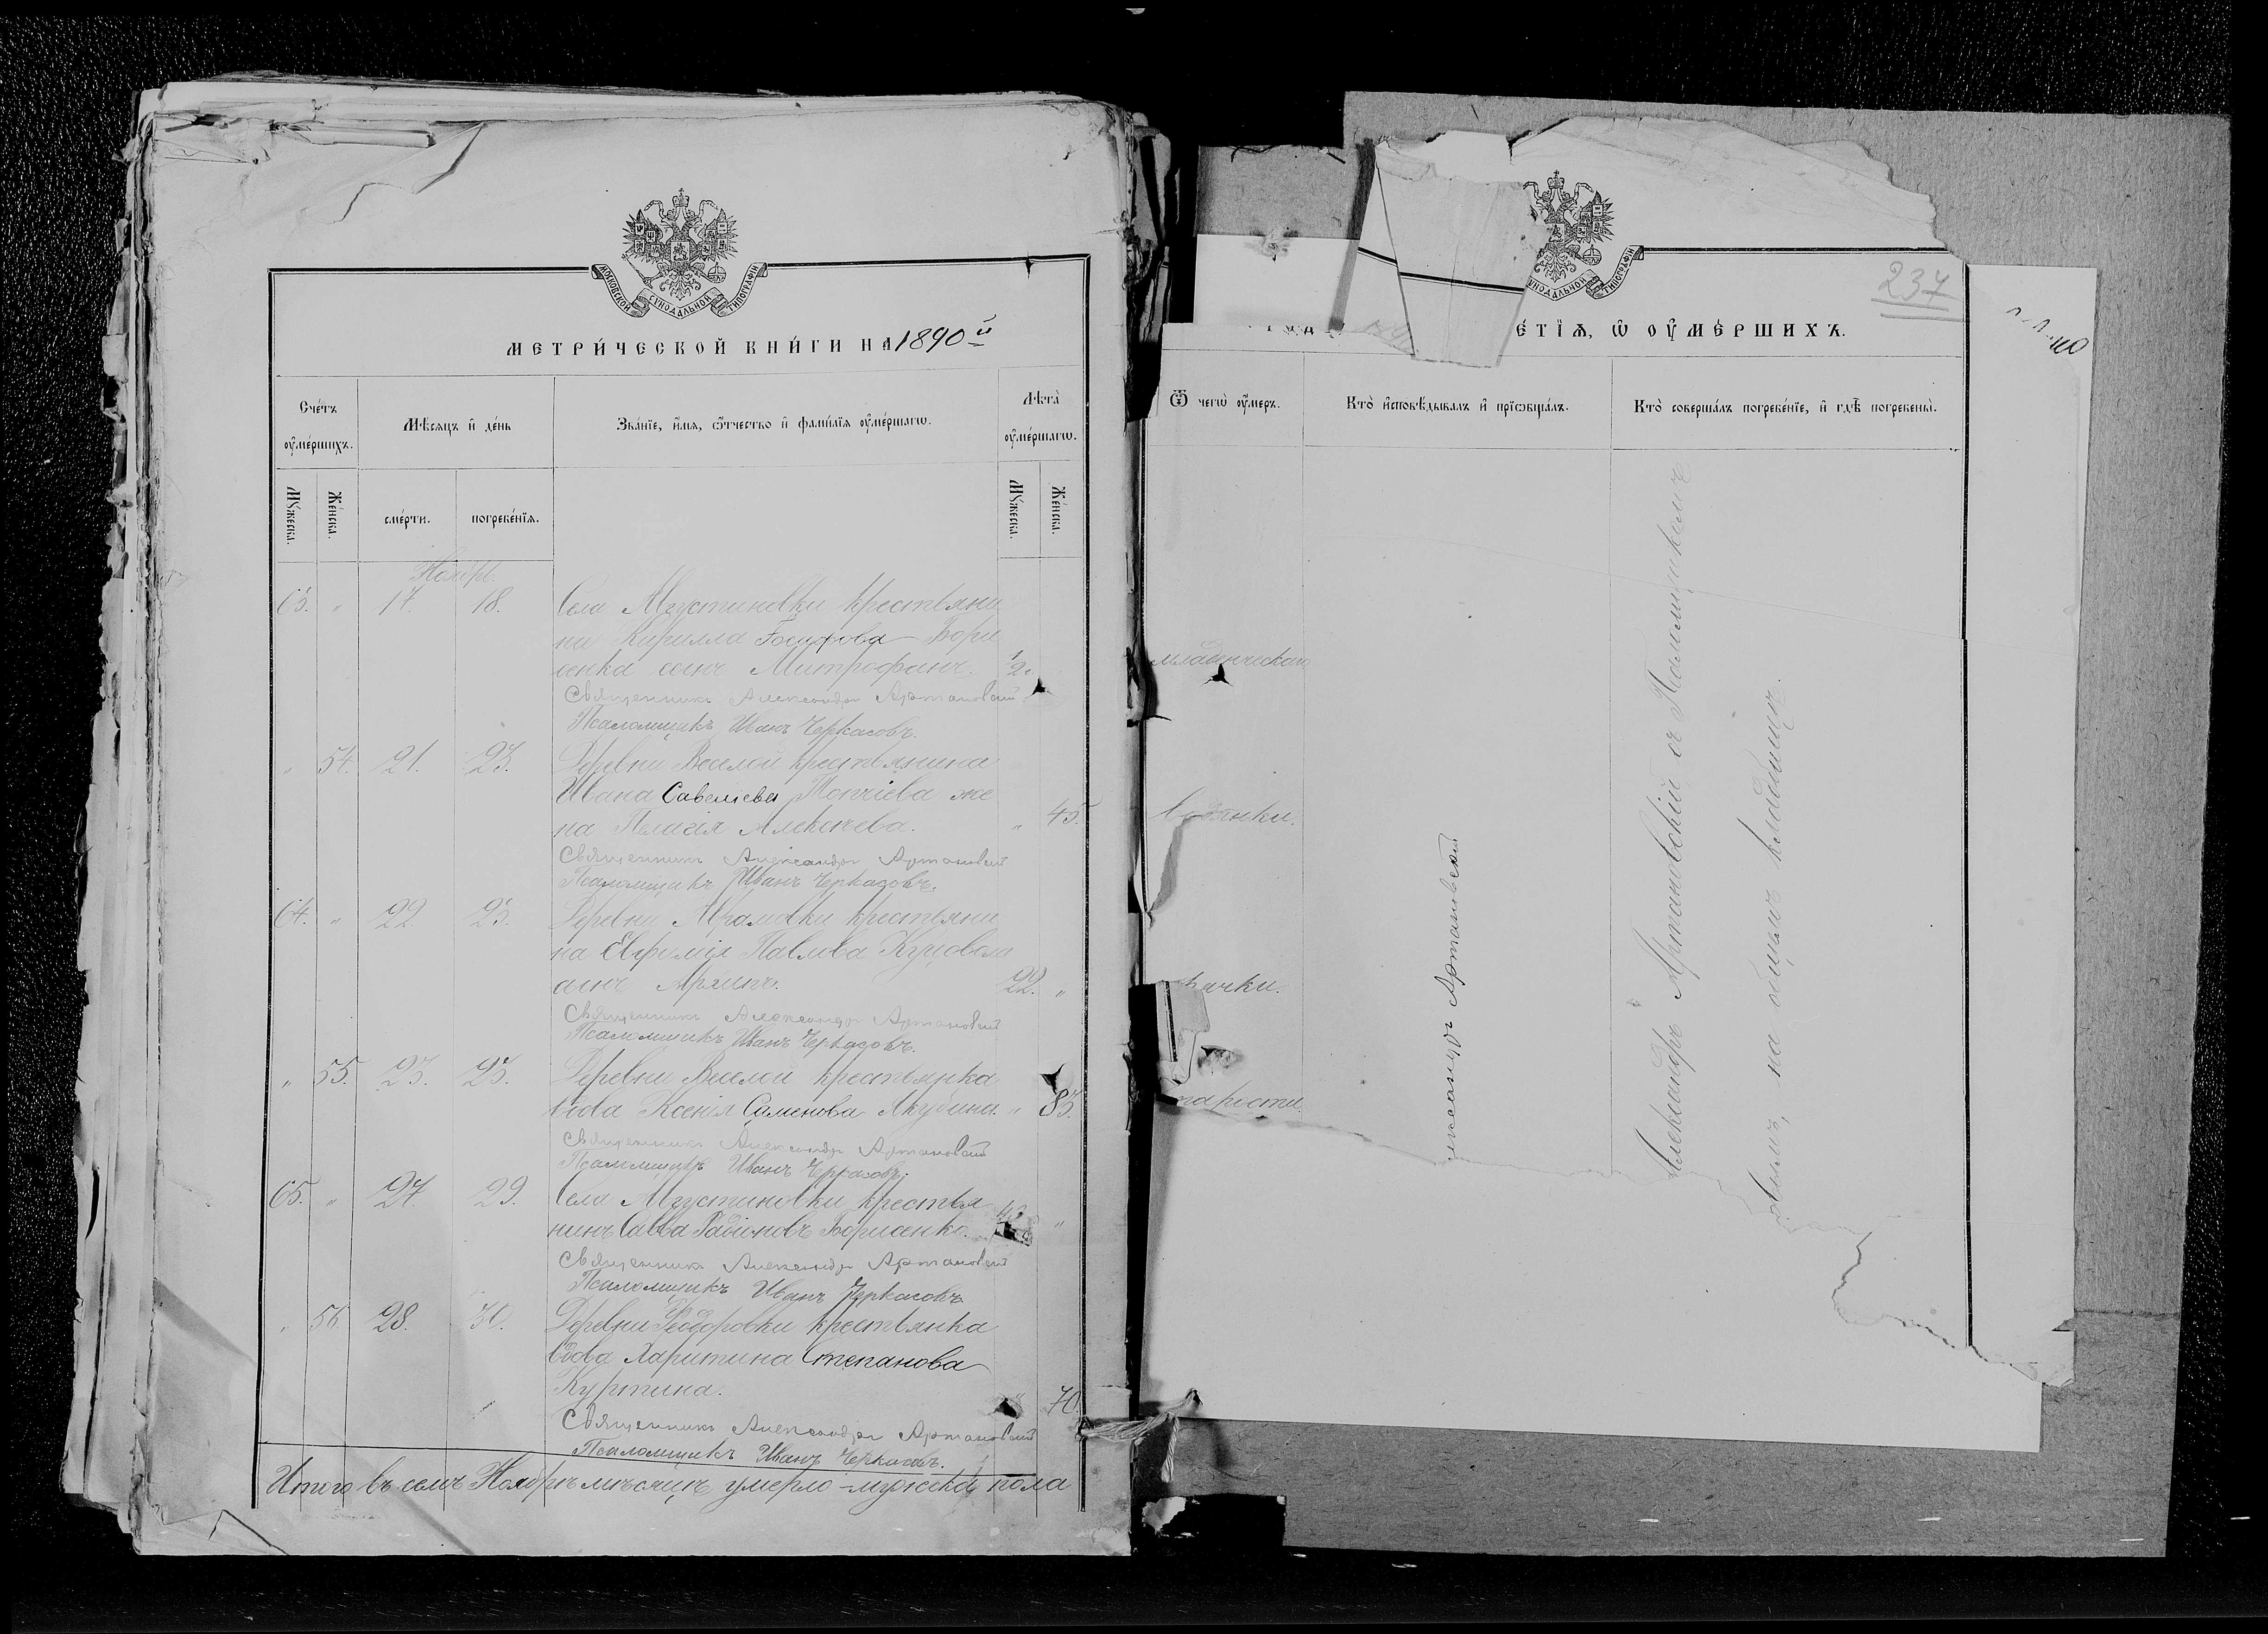 МОСКОВСКОЙ СѴНОДАЛЬНОЙ ТИПОГРАФІИ
МЕТРИ́ЧЕСКОЙ КНИ́ГИ НА 1890й
Сче́тъ оу҆ме́ршихъ.
Мѣ́сяцъ и҆ де́нь
Зва́нїе, и҆́мя, ѻ҆́тчество и҆ фами́лїя оу҆ме́ршагѡ.
Лѣта̀ оу҆ме́ршагѡ.
Мꙋ́жеска.
Же́нска.
сме́рти.
погребе́нїя.
Мꙋ́жеска.
Же́нска.
Ноябрь.
63. " 17. 18. Села Августиновки крестьяни
на Кирилла Іосифова Бори
сенка сынъ Митрофанъ. 1/2.
Священникъ Александръ Артановскій
Псаломщикъ Иванъ Черкасовъ.
" 54. 21. 23. Деревни Веселой крестьянина
Ивана Савельева Топчіева же
на Пелагія Алексѣева. " 45.
Священникъ Александръ Артановскій
Псаломщикъ Иванъ Черкасовъ.
64. " 22. 23. Деревни Абрамовки крестьяни
на Евфимія Павлова
сынъ Архипъ. 22. "
Священникъ Александръ Артановскій
Псаломщикъ Иванъ Черкасовъ.
" 55. 23. 25. Деревни Веселой крестьянка
вдова Ксенія Семенова Якубина. " 85.
Священникъ Александръ Артановскій
Псаломщикъ Иванъ Черкасовъ.
65. " 27. 29. Села Августиновки крестья
нинъ Савва Радіоновъ Борисенко. "
Священникъ Александръ Артановскій
Псаломщикъ Иванъ Черкасовъ
" 56 28. 30. Деревни Ѳеодоровки крестьянка
вдова Харитина Степанова
Куртина. " 70.
Священникъ Александръ Артановскій
Псаломщикъ Иванъ Черкасовъ.
Итого въ семъ Ноябрѣ мѣсяцѣ умерло - мужска пола
НОДАЛЬНОЙ ТИПОГРАФІИ
237
Е́ТЇѦ, Ѡ҆ ОУ҆МЕ́РШИХЪ.
Ѿ чегѡ̀ оу҆́меръ.
Кто̀ и҆сповѣ́дывалъ и҆ прїѡбща́лъ.
Кто̀ соверша́лъ погребе́нїе, и҆ гдѣ̀ погребены̀.
младенческой
водянки.
ячки.
тарости
лександръ Артановскій
Александръ Артановскій съ Псаломщикомъ
, на общемъ кладбищѣ.